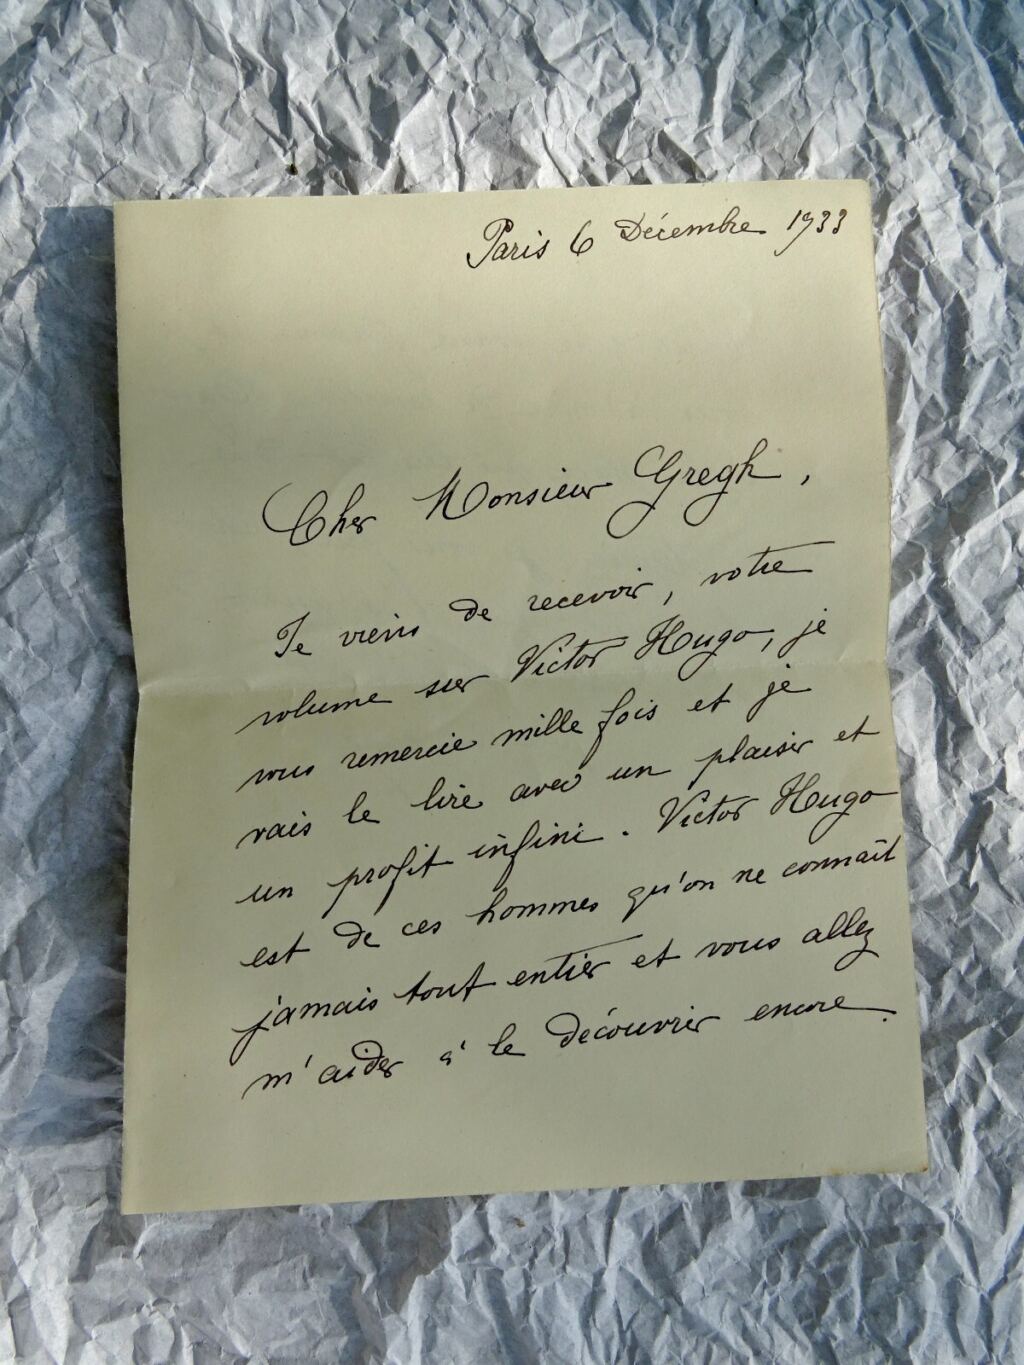 Paris 6 Décembre 1933
Cher Monsieur Gregh,
Je viens de recevoir, votre
volume sur Victor Hugo, je
vous remercie mille fois et je
vais le lire avec un plaisir et
un profit infini. Victor Hugo
est de ces hommes qu'on ne connaît
jamais tout entier et vous allez
m'aider à le découvrir encore.